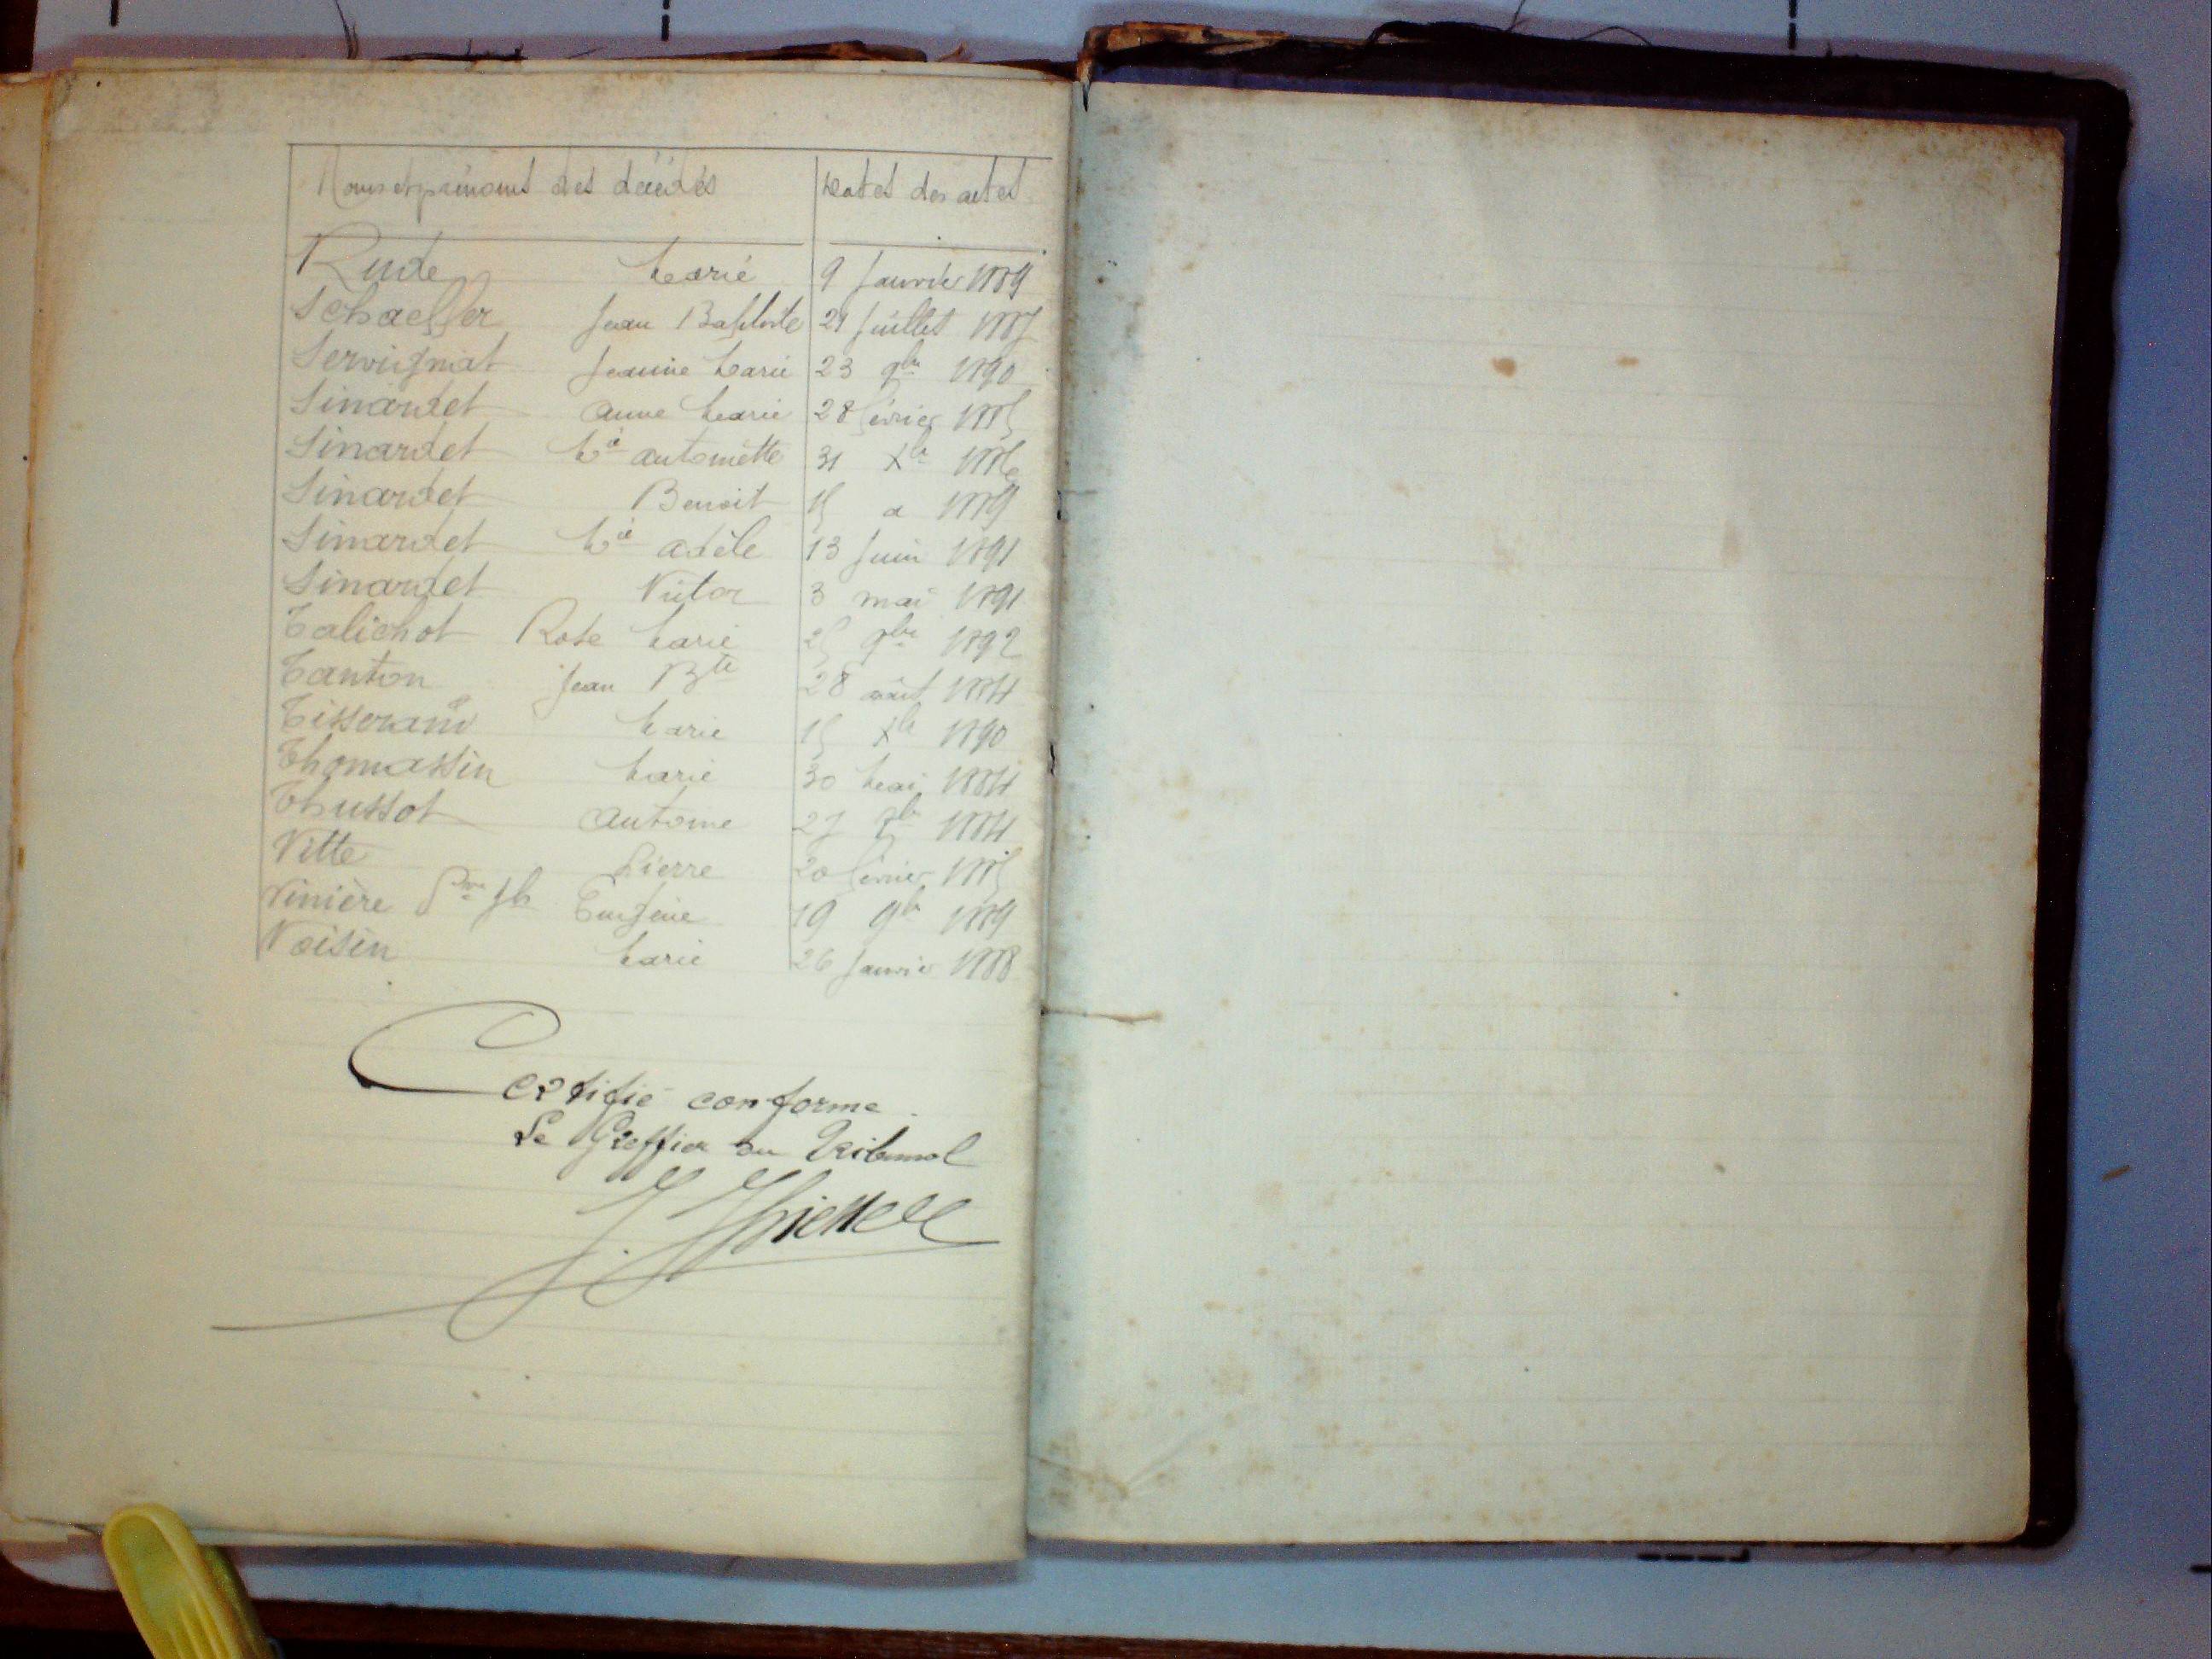 Noms et prénoms des décédés Dates des actes
Rude Marie 9 Janvier 1889
Schaeffer Jean Baptiste 21 Juillet 1887
Servignat Jeanne Marie 23 9bre 1890
Sinardet Anne Marie 28 février 1885
Sinardet Mie Antoinette 31 Xbre 1886
Sinardet Benoit 15 1889
Sinardet Mie Adèle 13 Juin 1891
Sinardet Victor 3 mai 1891
Talichot Rose Marie 25 1892
Tanton Jean Bte 28 août 1884
Tisserand Marie 15 Xbre 1890
Thomassin Marie 30 Mai 1884
Thussot Antoine 27 1884
Vitte Pierre 20 février 1885
Vinière Jh Eugène 19 9bre 1889
Voisin Marie 26 Janvier 1888
Certifié conforme
Le Greffier du Tribunal